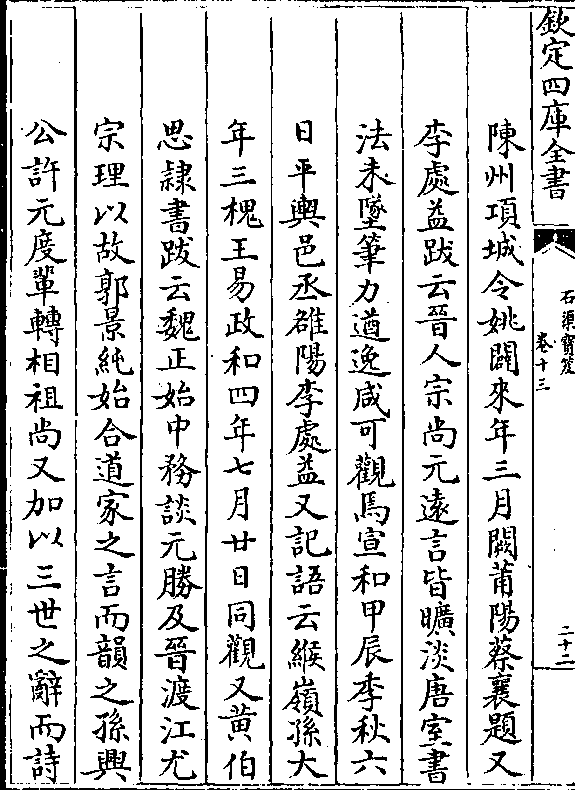 欽定四庫全書
石渠寶笈
卷十三
二十二
陳州項城令姚闢來年三月闕莆陽蔡襄題又
李處益跋云晉人宗尚元遠言皆曠淡唐室書
法未墜筆力遒逸咸可觀焉宣和甲辰季秋六
日平輿邑丞雒陽李處益又記語云緱嶺孫大
年三槐王易政和四年七月廿日同觀又黃伯
思隷書跋云魏正始中務談元勝及晉渡江尤
宗理以故郭景純始合道家之言而韻之孫興
公許元度輩轉相祖尚又加以三世之辭而詩